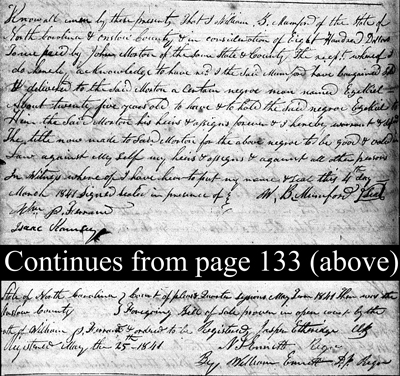 Know all men by these presents That I William B. Mumford of the State of
North Carolina & Onslow County & in consideration of Eight Hundred Dollars
To me paid by John Morton of the same State & County the rec't whereof I
do hereby acknowledge to have as I the said Mumford have bargained sold
& delivered to the said Morton a Certain negroe man named Ezekiel
About twenty five years old to have & to hold the said negroe Ezekiel to
Him the Said Morton his heirs & assigns forever & I hereby warrant &
The title now made to Said Morton for the above negroe to be good & valid in
Law against my Self my heirs & assigns & against all other persons
In Witness whereof I have here to put my name & Seal this 4th day
March 1841 Signed Sealed in presence of W. B. Mumford Seal
Wm. P. Ferrand
Isaac
Continues from page 133 (above)
State of North Carolina Court of pleas & Quarter sessions May Term 1841 Then was the
Onslow County foregoing Bill of Sale proven in open court by the
oath of William P. Ferrand & ordered to be Registered Jasper Etheridge Clk
Registered May the 25th 1841
By William